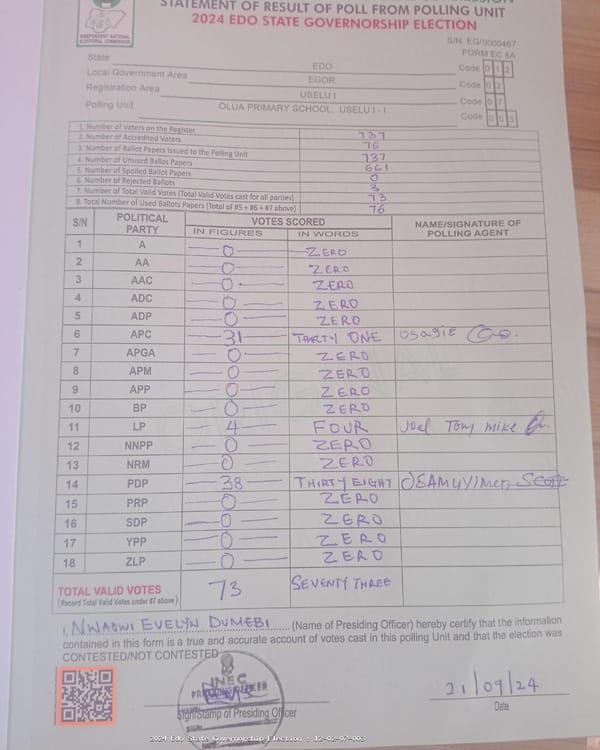 STATEMENT OF RESULT OF POLL FROM POLLING UNIT
2024 EDO STATE GOVERNORSHIP ELECTION
INDEPENDENT NATIONAL
ELECTORAL COMMISSION
S/N EG/0000467
FORM EC 8A
State EDO Code 0 1 2
Local Government Area EGOR Code 0 2
Registration Area USELU I Code 0 7
Polling Unit OLUA PRIMARY SCHOOL, USELU I - I Code 0 0 3
1. Number of Voters on the Register 737
2. Number of Accredited Voters 76
3. Number of Ballot Papers Issued to the Polling Unit 737
4. Number of Unused Ballot Papers 661
5. Number of Spoiled Ballot Papers 0
6. Number of Rejected Ballots 3
7. Number of Total Valid Votes (Total Valid Votes cast for all parties) 73
8. Total Number of Used Ballots Papers (Total of #5 + #6 + #7 above) 76
S/N POLITICAL PARTY VOTES SCORED NAME/SIGNATURE OF POLLING AGENT
IN FIGURES IN WORDS
1 A 0 ZERO
2 AA 0 ZERO
3 AAC 0 ZERO
4 ADC 0 ZERO
5 ADP 0 ZERO
6 APC 31 THIRTY ONE Osagie
7 APGA 0 ZERO
8 APM 0 ZERO
9 APP 0 ZERO
10 BP 0 ZERO
11 LP 4 FOUR Joel Tony mike
12 NNPP 0 ZERO
13 NRM 0 ZERO
14 PDP 38 THIRTY EIGHT
15 PRP 0 ZERO
16 SDP 0 ZERO
17 YPP 0 ZERO
18 ZLP 0 ZERO
TOTAL VALID VOTES 73 SEVENTY THREE
(Record Total Valid Votes under #7 above)
I, NWAOWI EVELYN DUMEBI (Name of Presiding Officer) hereby certify that the information
contained in this form is a true and accurate account of votes cast in this polling Unit and that the election was
CONTESTED/NOT CONTESTED
INEC
PRESIDING OFFICER
21/09/24
Sign/Stamp of Presiding Officer
Date
DATE
2024 Edo State Governorship Election - 12-02-07-003